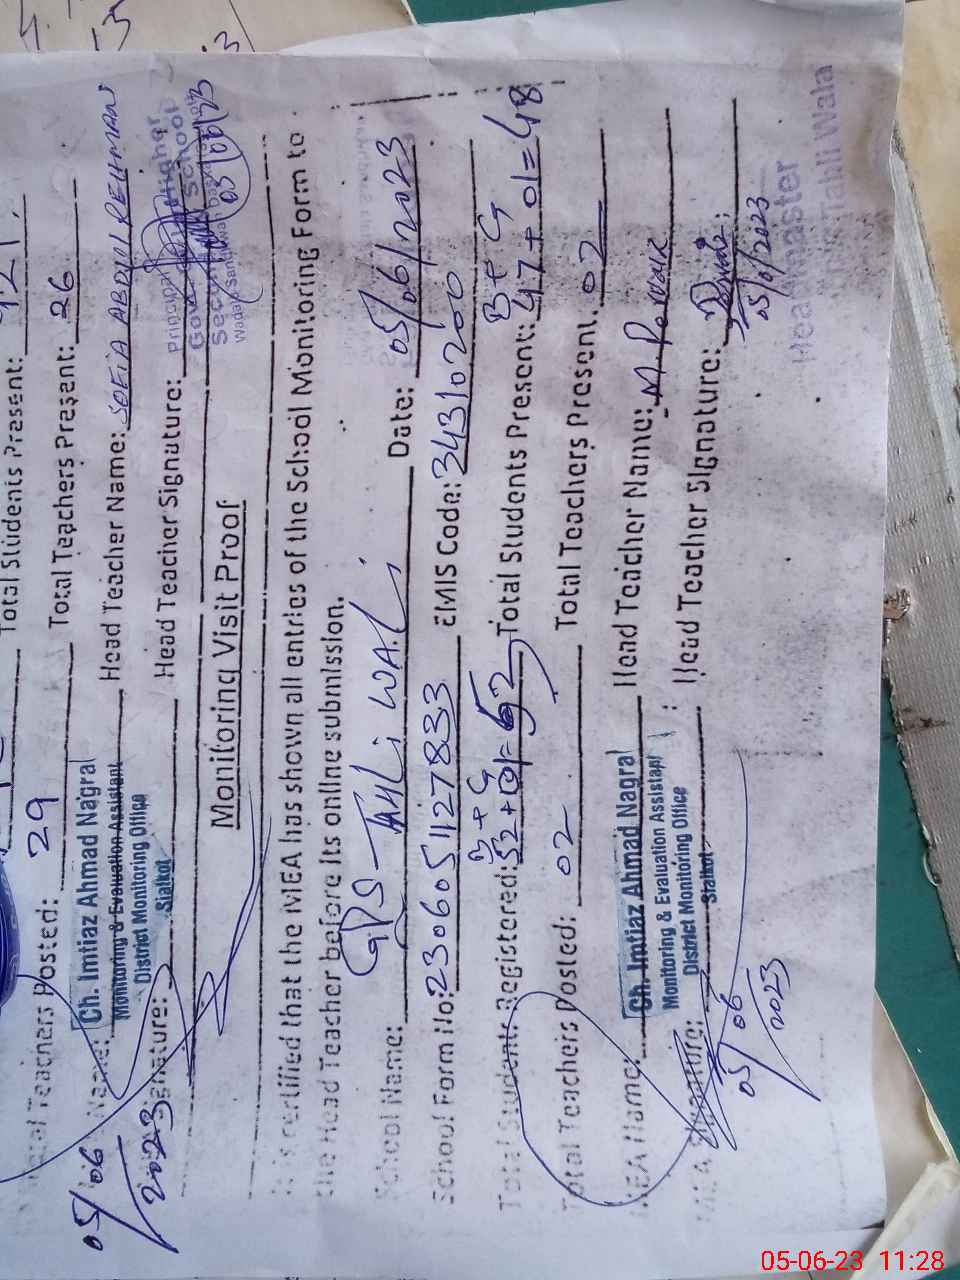 Total Students Present:
Total Teachers Posted: 29 Total Teachers Present: 26
Name: Ch. Imtiaz Ahmad Nagral Head Teacher Name: SOFIA ABDUL REHMAN
Monitoring & Evaluation Assistant
District Monitoring Office
Sialkot
Signature: Head Teacher Signature:
05/06
2023
Principal
Govt. Higher
Secondary School
05/06/23
Monitoring Visit Proof
It is certified that the MEA has shown all entries of the School Monitoring Form to
the Head Teacher before its online submission.
School Name: GPS-TAHLi WALi Date: 05/06/2023
School Form No: 2306051127833 EMIS Code: 34310200
B + G B + G
Total Students Registered: 52+01= Total Students Present: 47+01=48
Total Teachers Posted: 02 Total Teachers Present. 02
MEA Name: Ch. Imtiaz Ahmad Nagral Head Teacher Name: M.
Monitoring & Evaluation Assistant
District Monitoring Office
Sialkot
MEA Signature: Head Teacher Signature:
05/06
2023
05/6/2023
Headmaster
Tahli Wala
05-06-23 11:28